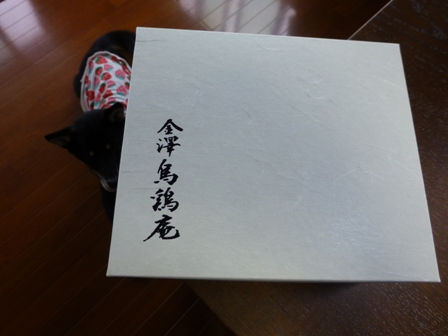 金澤烏鶏庵